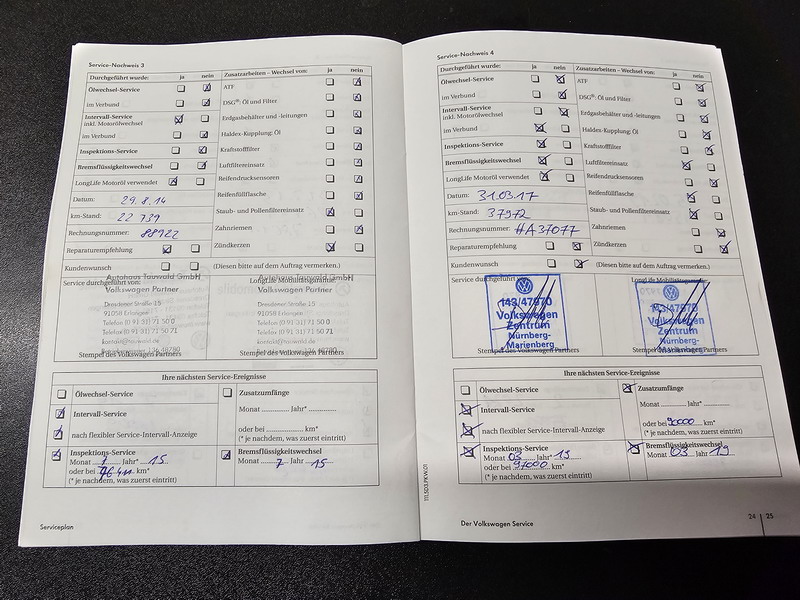 Service-Nachweis 3
Durchgeführt wurde: ja nein
Ölwechsel-Service
im Verbund
Intervall-Service
inkl. Motorölwechsel
im Verbund
Inspektions-Service
Bremsflüssigkeitswechsel
LongLife Motoröl verwendet
Datum: 29.8.14
km-Stand: 22 739
Rechnungsnummer: 88922
Reparaturempfehlung
Kundenwunsch
Zusatzarbeiten – Wechsel von: ja nein
ATF
DSG®: Öl und Filter
Erdgasbehälter und -leitungen
Haldex-Kupplung: Öl
Kraftstofffilter
Luftfiltereinsatz
Reifendrucksensoren
Reifenfüllflasche
Staub- und Pollenfiltereinsatz
Zahnriemen
Zündkerzen
(Diesen bitte auf dem Auftrag vermerken.)
Service durchgeführt von:
Autohaus Tauwald GmbH
Volkswagen Partner
Dresdener Straße 15
91058 Erlangen
Telefon (0 91 31) 71 50 0
Telefax (0 91 31) 71 50 71
kontakt@tauwald.de
Stempel des Volkswagen Partners
LongLife Mobilitätsgarantie:
Autohaus Tauwald GmbH
Volkswagen Partner
Dresdener Straße 15
91058 Erlangen
Telefon (0 91 31) 71 50 0
Telefax (0 91 31) 71 50 71
kontakt@tauwald.de
Stempel des Volkswagen Partners
Ihre nächsten Service-Ereignisse
Ölwechsel-Service
Intervall-Service
nach flexibler Service-Intervall-Anzeige
Inspektions-Service
Monat 7 Jahr* 15
oder bei km*
(* je nachdem, was zuerst eintritt)
Zusatzumfänge
Monat Jahr*
oder bei km*
(* je nachdem, was zuerst eintritt)
Bremsflüssigkeitswechsel
Monat 7 Jahr 15
Serviceplan
Service-Nachweis 4
Durchgeführt wurde: ja nein
Ölwechsel-Service
im Verbund
Intervall-Service
inkl. Motorölwechsel
im Verbund
Inspektions-Service
Bremsflüssigkeitswechsel
LongLife Motoröl verwendet
Datum: 31.03.17
km-Stand: 37972
Rechnungsnummer: HA37077
Reparaturempfehlung
Kundenwunsch
Zusatzarbeiten – Wechsel von: ja nein
ATF
DSG®: Öl und Filter
Erdgasbehälter und -leitungen
Haldex-Kupplung: Öl
Kraftstofffilter
Luftfiltereinsatz
Reifendrucksensoren
Reifenfüllflasche
Staub- und Pollenfiltereinsatz
Zahnriemen
Zündkerzen
(Diesen bitte auf dem Auftrag vermerken.)
Service durchgeführt
143/47970
Volkswagen
Zentrum
Nürnberg-
Marienberg
Stempel des Volkswagen Partners
LongLife Mobilitätsgarantie:
143/47970
Volkswagen
Zentrum
Nürnberg-
Marienberg
Stempel des Volkswagen Partners
Ihre nächsten Service-Ereignisse
Ölwechsel-Service
Intervall-Service
nach flexibler Service-Intervall-Anzeige
Inspektions-Service
Monat 03 Jahr* 19
oder bei 97000 km*
(* je nachdem, was zuerst eintritt)
Zusatzumfänge
Monat Jahr*
oder bei 90000 km*
(* je nachdem, was zuerst eintritt)
Bremsflüssigkeitswechsel
Monat 03 Jahr 19
Der Volkswagen Service
24 | 25